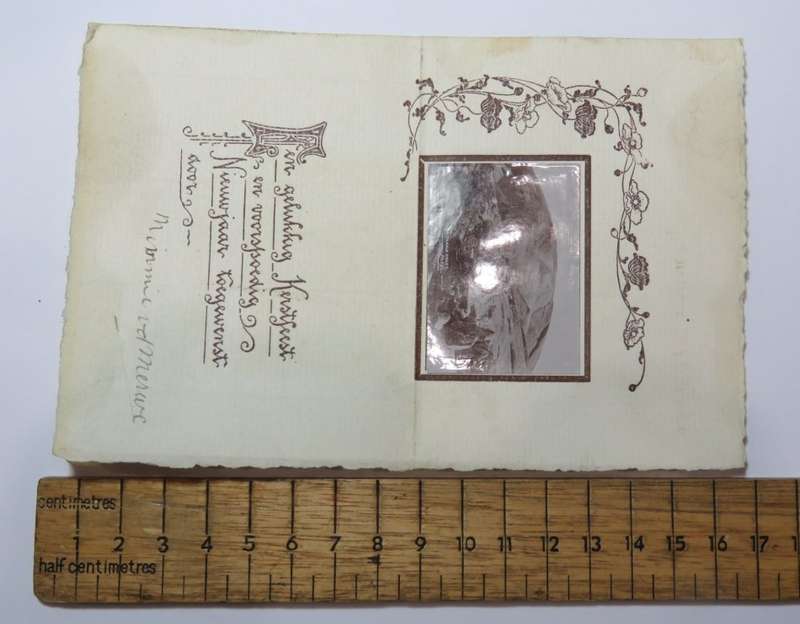 Een gelukkig Kerstfeest
en voorspoedig
Nieuwjaar toegewenst
door
Minnie vd Merwe
centimetres
1 2 3 4 5 6 7 8 9 10 11 12 13 14 15 16 17
half centimetres